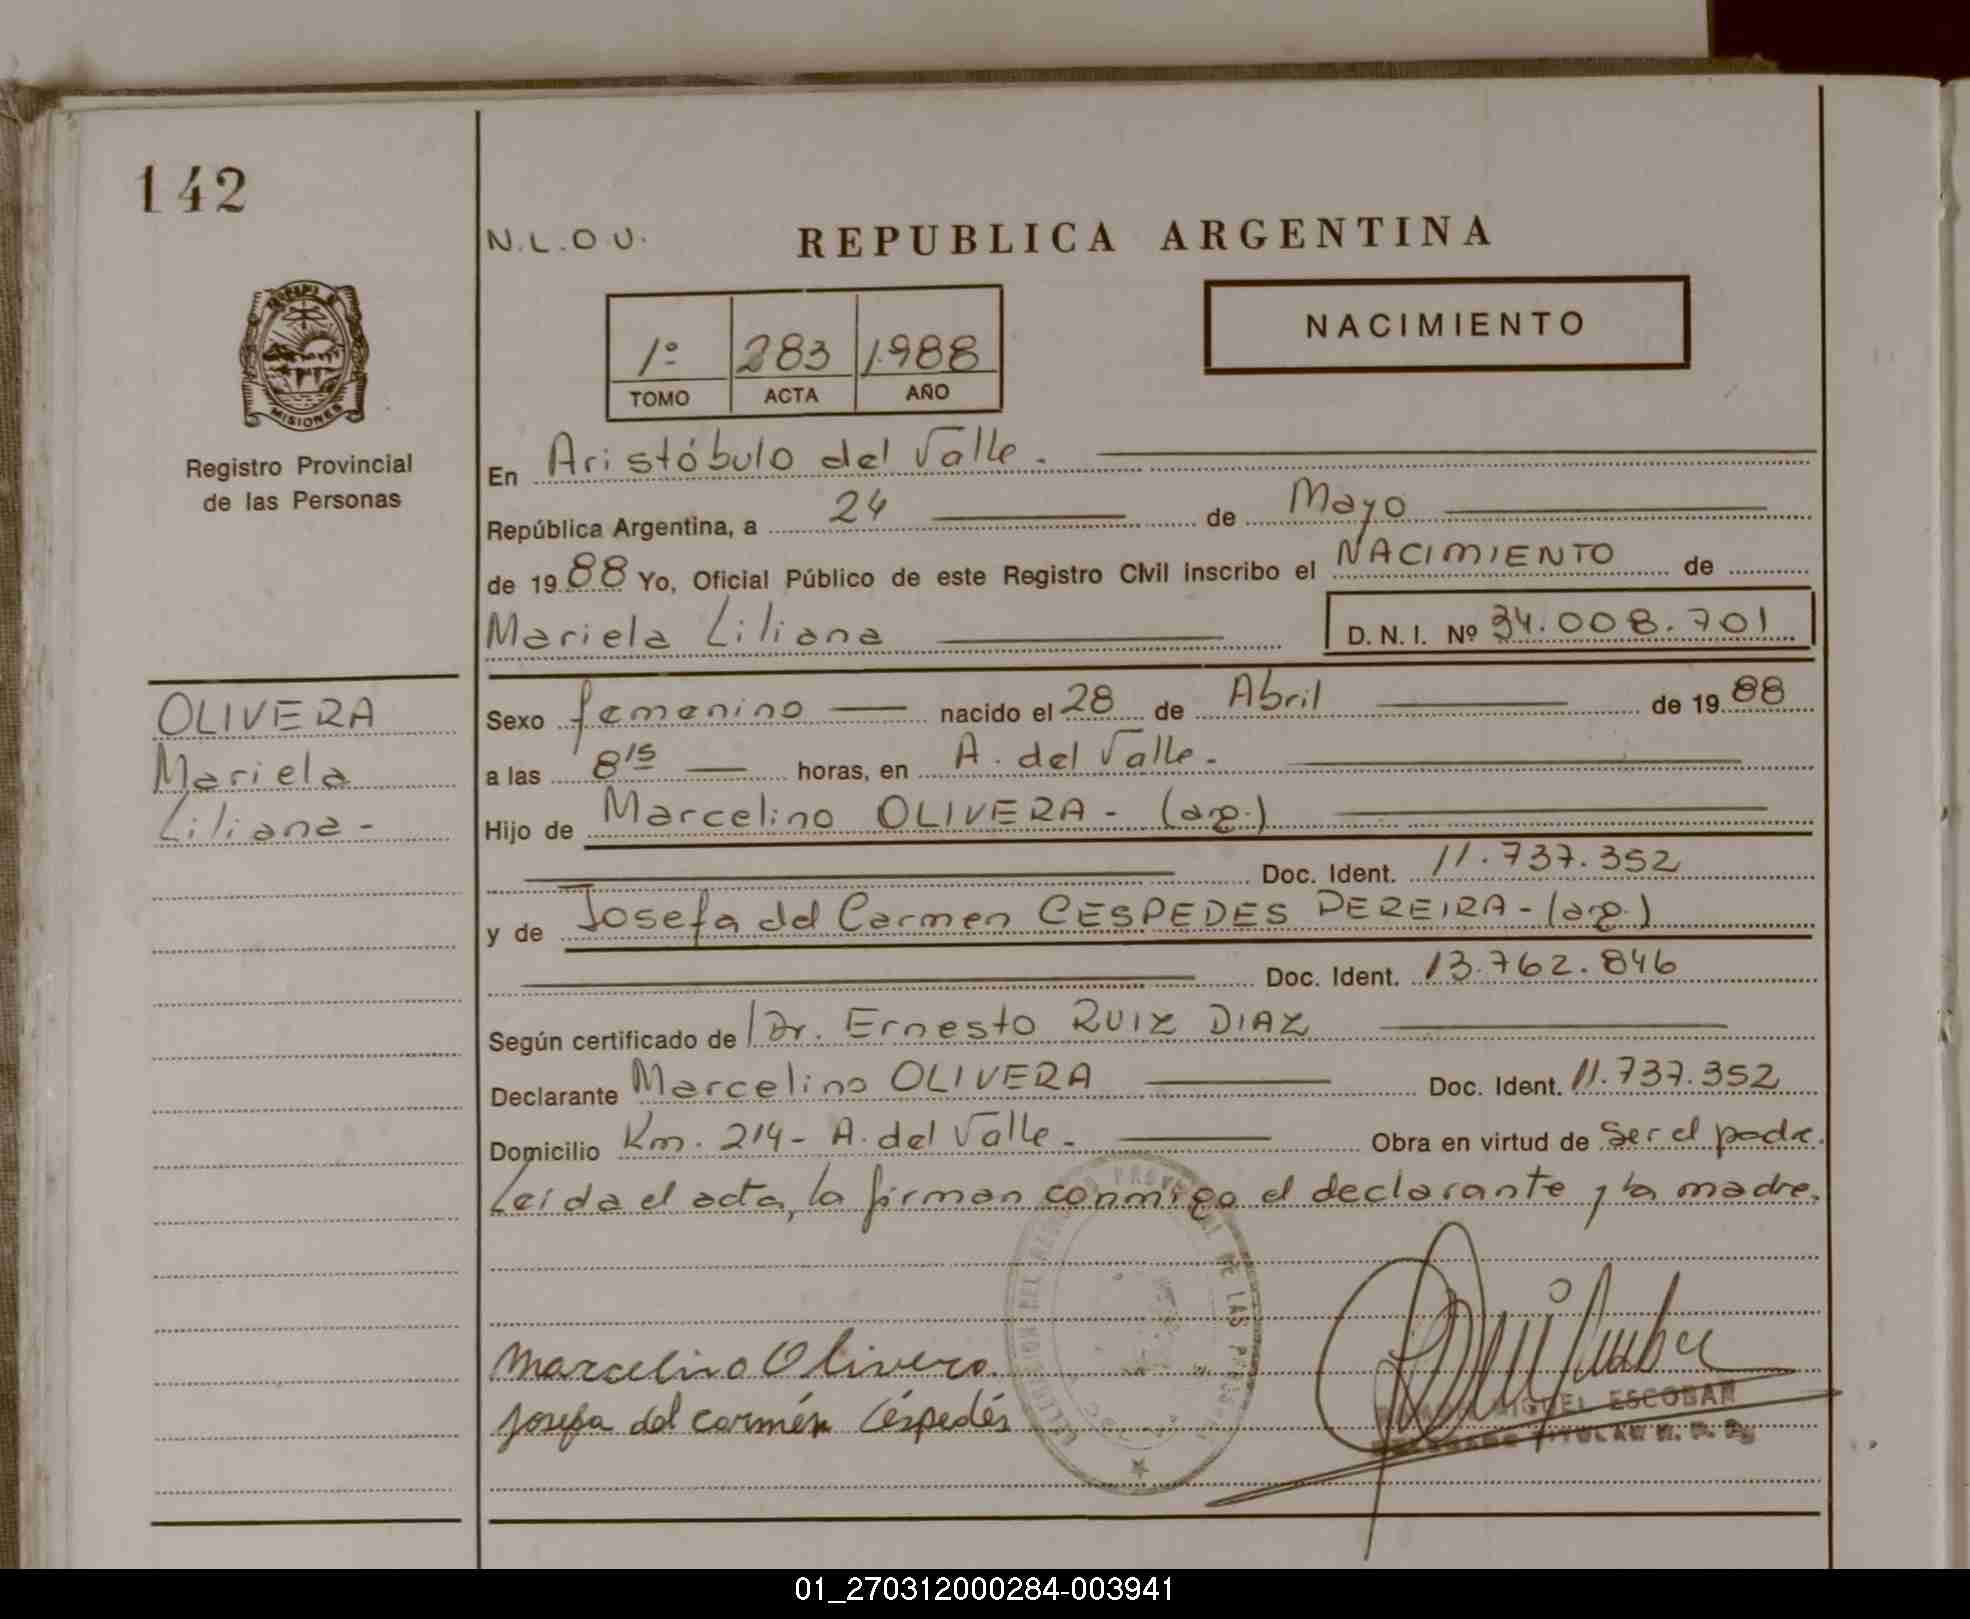 142
N.L.O.U.
REPUBLICA ARGENTINA
NACIMIENTO
1º 283 1.988
TOMO ACTA AÑO
MISIONES
Registro Provincial
de las Personas
En Aristóbulo del Valle.
República Argentina, a 24 de Mayo
de 1988 Yo, Oficial Público de este Registro Civil inscribo el NACIMIENTO de
Mariela Liliana D.N.I. Nº 34.008.701
OLIVERA
Mariela
Liliana-
Sexo femenino nacido el 28 de Abril de 1988
a las 8 15 horas, en A. del Valle.
Hijo de Marcelino OLIVERA - (arg.)
Doc. Ident. 11.737.352
y de Josefa del Carmen CESPEDES PEREIRA - (arg.)
Doc. Ident. 13.762.846
Según certificado de Dr. Ernesto RUIZ DIAZ
Declarante Marcelino OLIVERA Doc. Ident. 11.737.352
Domicilio Km. 214 - A. del Valle. Obra en virtud de ser el padre.
Leída el acta, la firman conmigo el declarante y la madre.
Marcelino Olivera
Josefa del carmén Céspedés
MIGUEL ESCOBAR
TITULAR R. P. P.
01_270312000284-003941